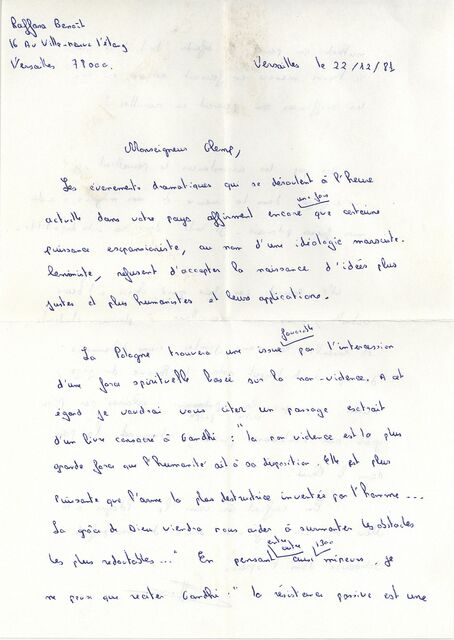 Raffara Benoît
16 Av Ville-neuve l'étang
Versailles 78000.
Versailles le 22/12/81
Monseigneur Glemp,
Les évenements dramatiques qui se déroulent à l'heure
actuelle dans votre pays affirment encore une fois que certaine
puissance expansionniste, au nom d'une idéologie marxiste.
leniniste, refusent d'accepter la naissance d'idées plus
justes et plus humanistes et leurs applications.
La Pologne trouvera une issue favorable par l'intercession
d'une force spirituelle basée sur la non-violence. A cet
égard je voudrai vous citer un passage extrait
d'un livre consacré à Gandhi : "la non violence est la plus
grande force que l'humanité ait à sa disposition. Elle est plus
puissante que l'arme la plus destructrice inventée par l'homme...
La grâce de Dieu viendra nous aider à surmonter les obstacles
les plus redoutables..." En pensant entre autre aux 1300 mineurs, je
ne peux que reciter Gandhi : "la résistance passive est une